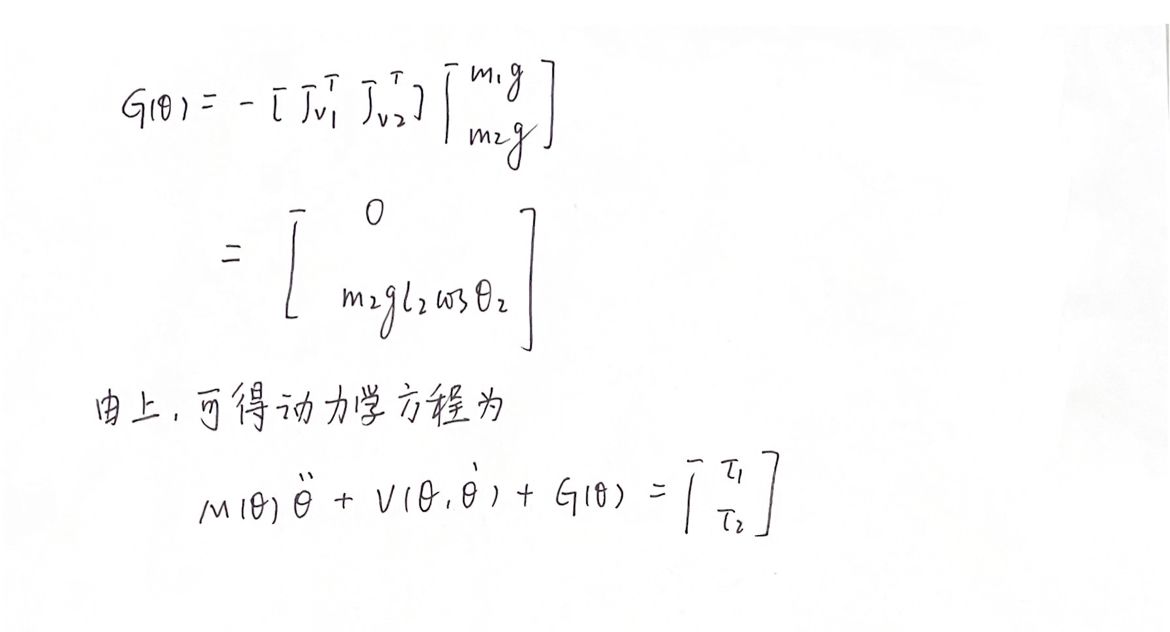 G(θ) = - [ J_{v1}^T J_{v2}^T ] [ m₁g
m₂g ]
= [ 0
m₂gl₂cosθ₂ ]
由上，可得动力学方程为
M(θ)θ̈ + V(θ,θ̇) + G(θ) = [ τ₁
τ₂ ]